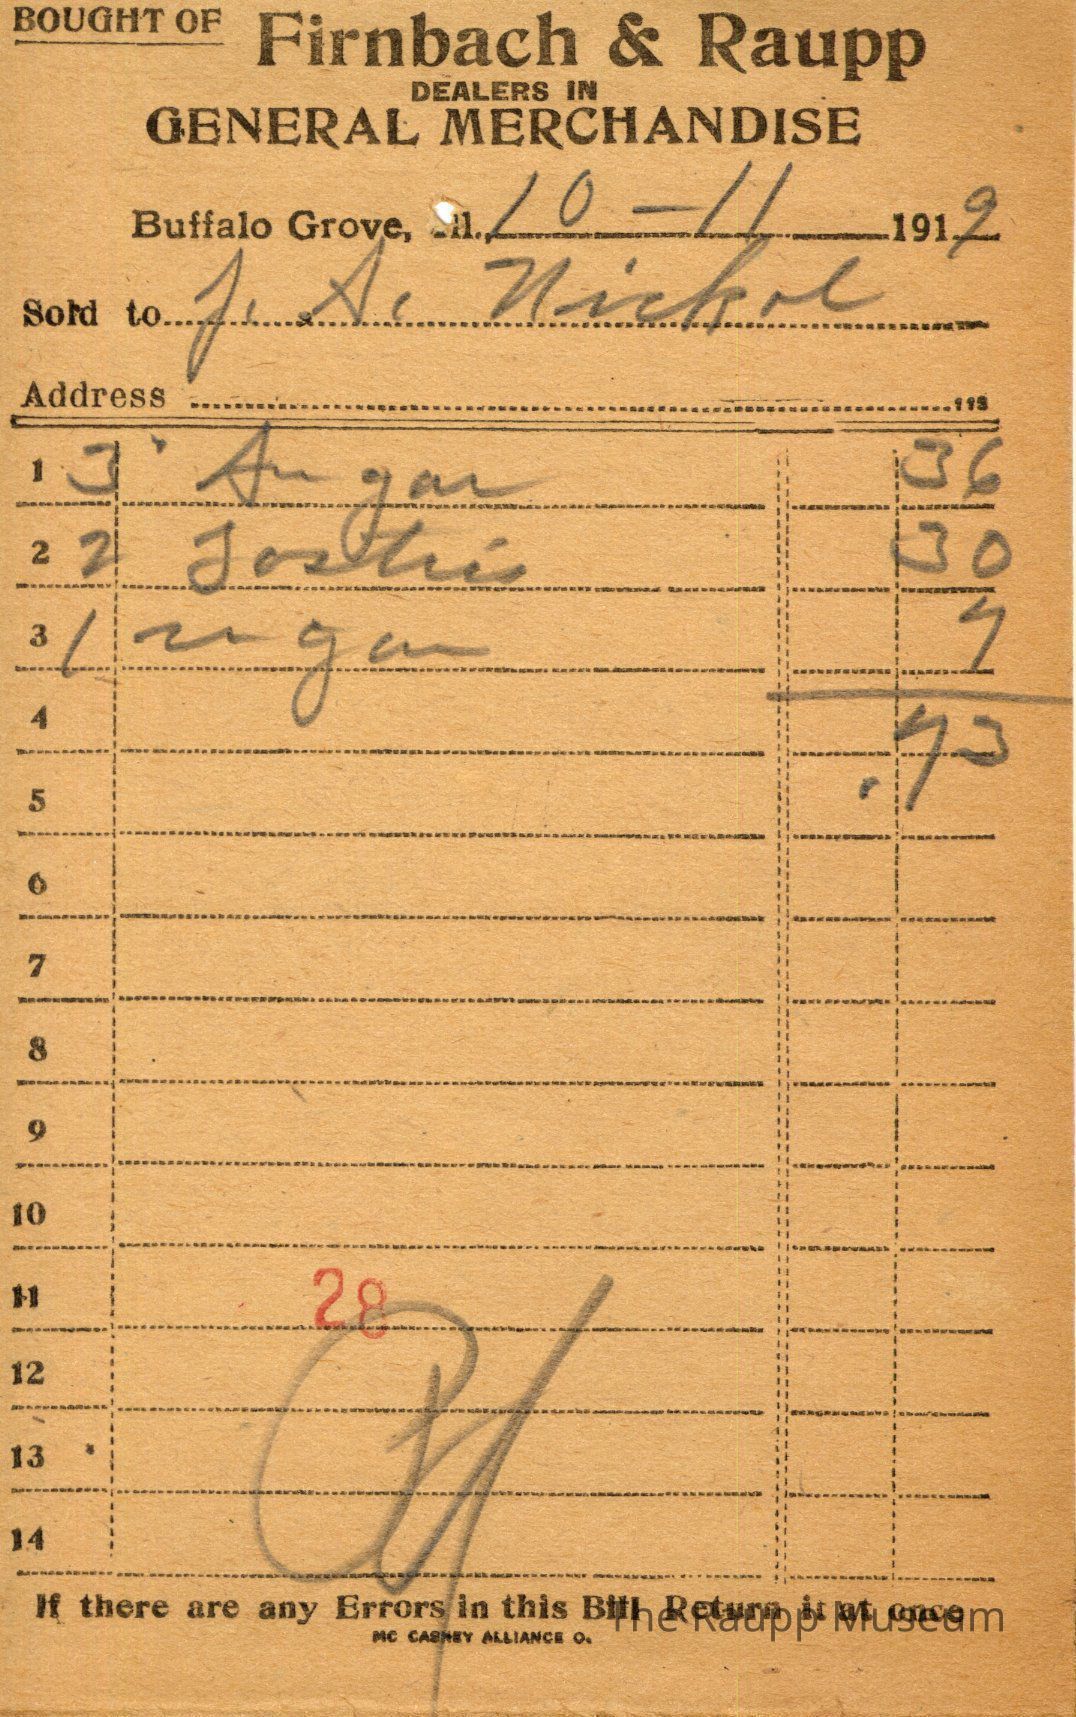 BOUGHT OF Firnbach & Raupp
DEALERS IN
GENERAL MERCHANDISE
Buffalo Grove, Ill., 10-11 1919
Sold to J. S. Nickol
Address
113
1 3 Sugar 36
2 2 Tosties 30
3 1 sugar 7
4 .73
5
6
7
8
9
10
11 28
12
13
14
If there are any Errors in this Bill Return it at once
MC CASKEY ALLIANCE O.
The Raupp Museum